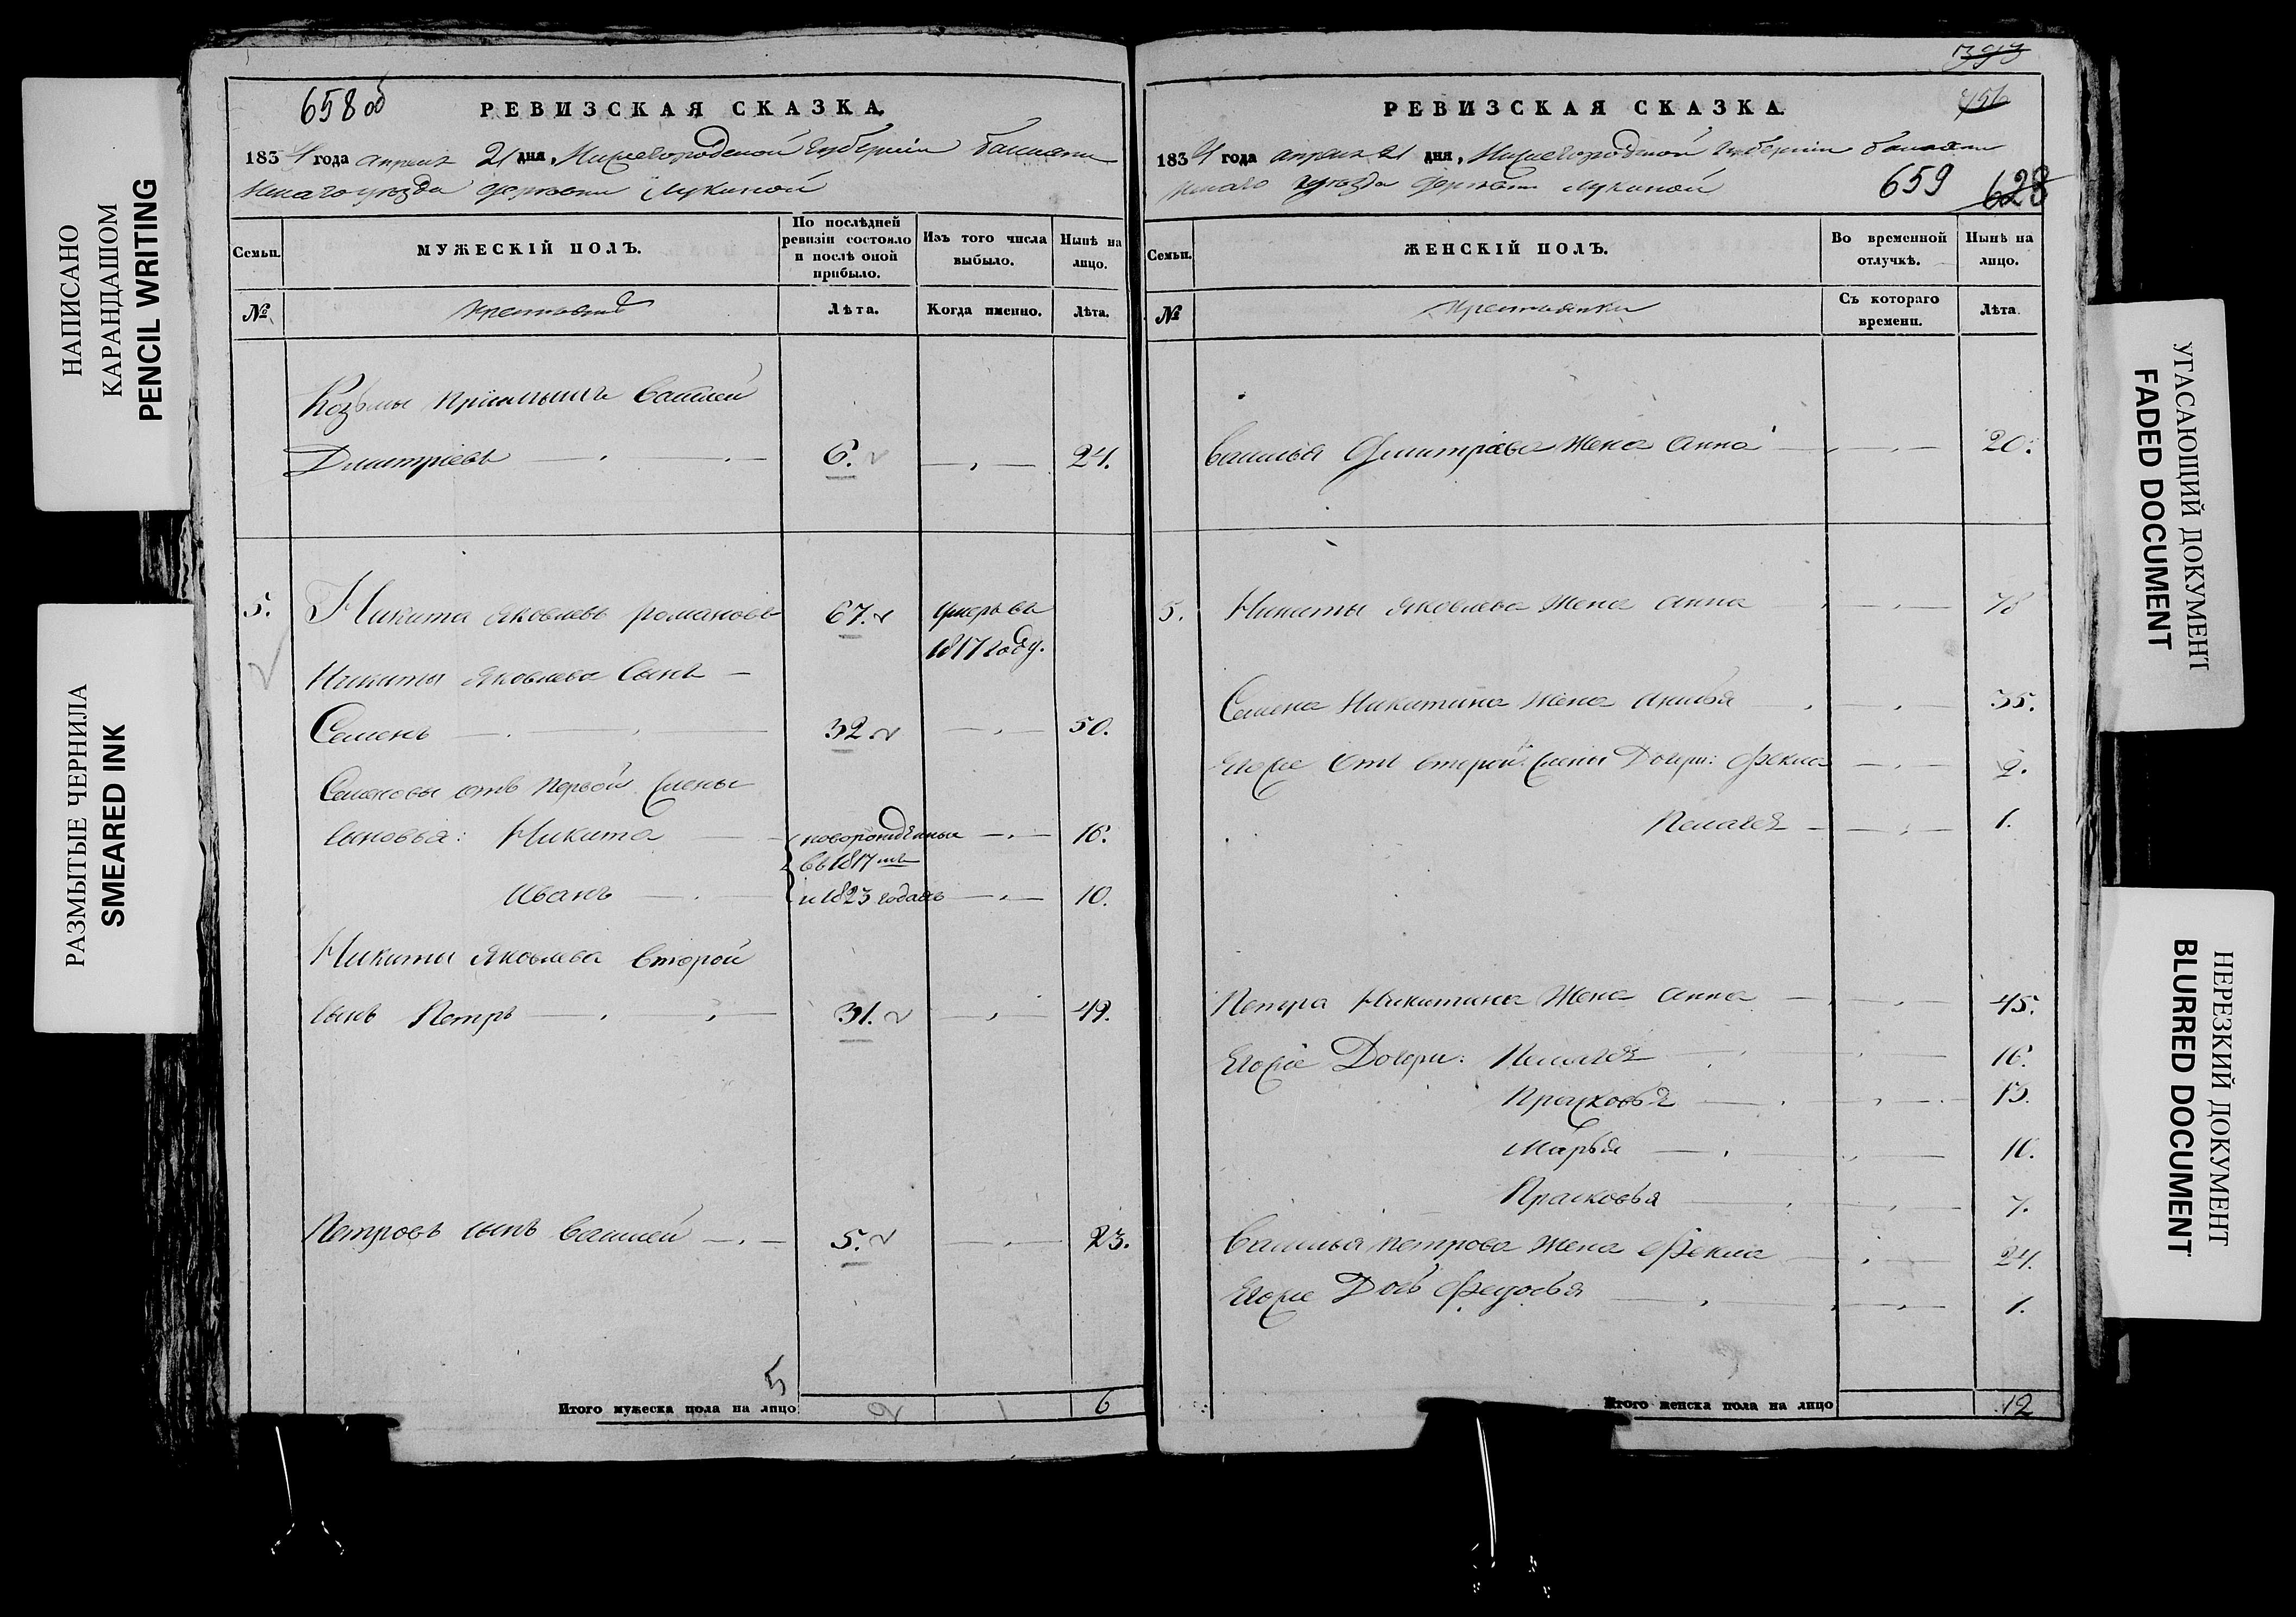 НАПИСАНО
КАРАНДАШОМ
PENCIL WRITING
РАЗМЫТЫЕ ЧЕРНИЛА
SMEARED INK
658 об
РЕВИЗСКАЯ СКАЗКА.
1834 года апреля 21 дня, Нижегородской губерніи балахни
нскаго уѣзда деревни Лукиной
Семьи.
МУЖЕСКІЙ ПОЛЪ.
По послѣдней
ревизіи состояло
и послѣ оной
прибыло.
Изъ того числа
выбыло.
Нынѣ на
лицо.
№
Лѣта.
Когда именно.
Лѣта.
Козьмы пріимышъ Василей
Дмитріевъ 6. 24.
5. Никита Яковлевъ романовъ 67. умеръ въ
1817 году.
Никиты Яковлева Сынъ
Семенъ 32 50.
Семеновы отъ первой жены
сыновья: Никита новорожденныи 16.
въ 1817 мъ
Иванъ и 1823 годахъ 10.
Никиты Яковлева второй
сынъ Петръ 31. 49.
Петровъ сынъ Василей 5. 23.
5
Итого мужеска пола на лицо 6
РЕВИЗСКАЯ СКАЗКА.
456
1834 года апреля 21 дня, Нижегородской губерніи балахни
нскаго уѣзда деревни Лукиной
659 628
Семьи.
ЖЕНСКІЙ ПОЛЪ.
Во временной
отлучкѣ.
Нынѣ на
лицо.
№
крестьянки
Съ котораго
времени.
Лѣта.
Василья Дмитріева жена анна 20.
5. Никиты Яковлева жена анна 78
Семена Никитина жена 35.
Егоже отъ второй жены Дочери: Фекла 2.
Пелагея 1.
Петра Никитина жена анна 45.
Егоже Дочери: Пелагея 16.
Прасковья 13.
Марья 10.
Прасковья 7.
Василья петрова жена Фекла 24.
Егоже Дочь Федосья 1.
Итого женска пола на лицо 12
УГАСАЮЩИЙ ДОКУМЕНТ
FADED DOCUMENT
НЕРЕЗКИЙ ДОКУМЕНТ
BLURRED DOCUMENT